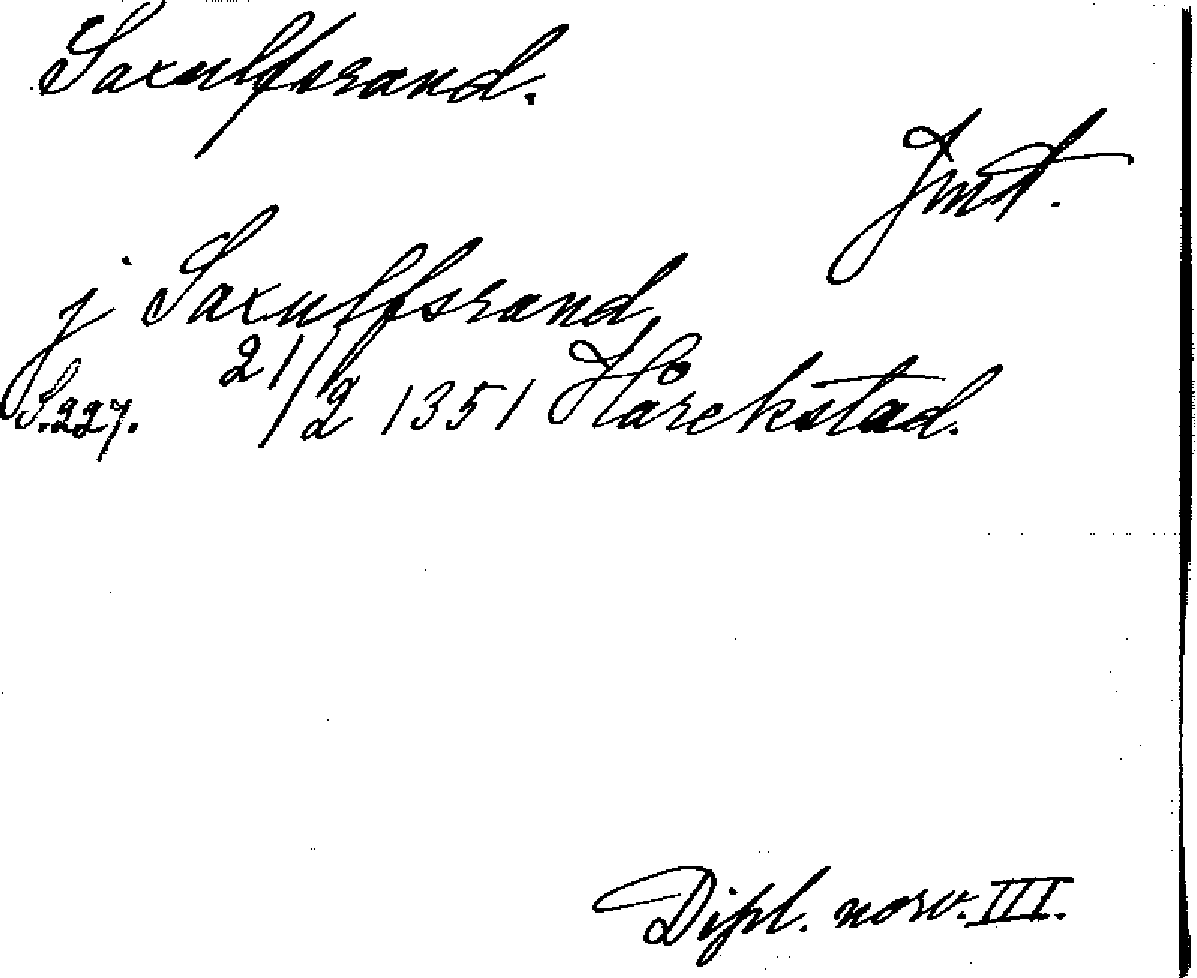 Saxulfsrand.
Jmt.
j Saxulfsrand
S.227. 21/2 1351 Hårekstad.
Dipl. norv. III.